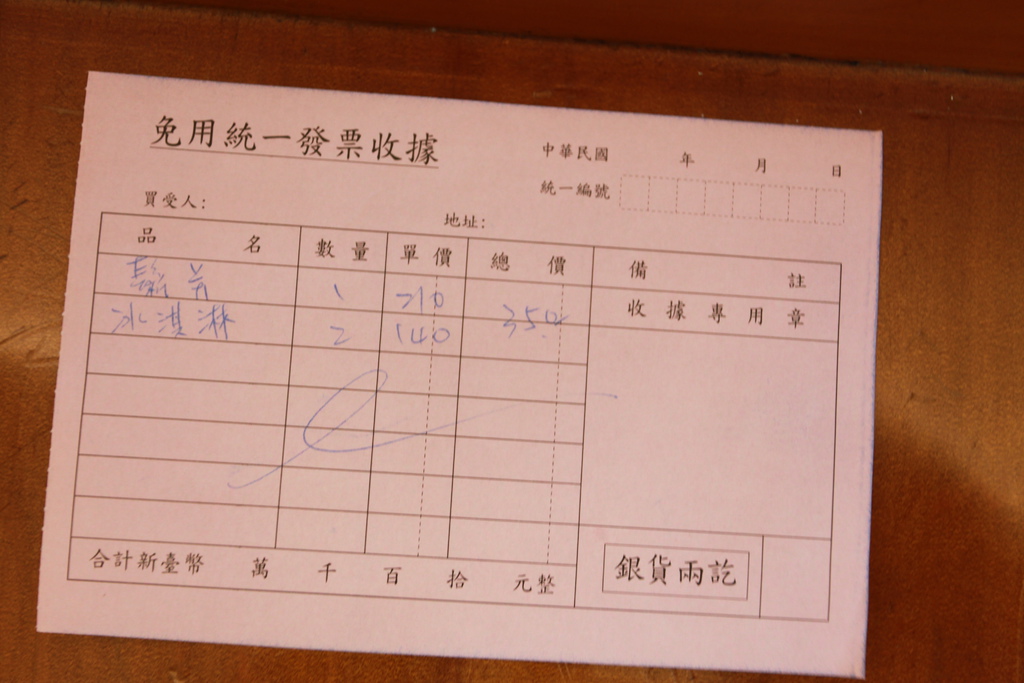 免用統一發票收據
中華民國 年 月 日
統一編號
買受人: 地址:
品名 數量 單價 總價 備註
鬆芳 1 210
收據專用章
冰淇淋 2 140 350
合計新臺幣 萬 千 百 拾 元整
銀貨兩訖